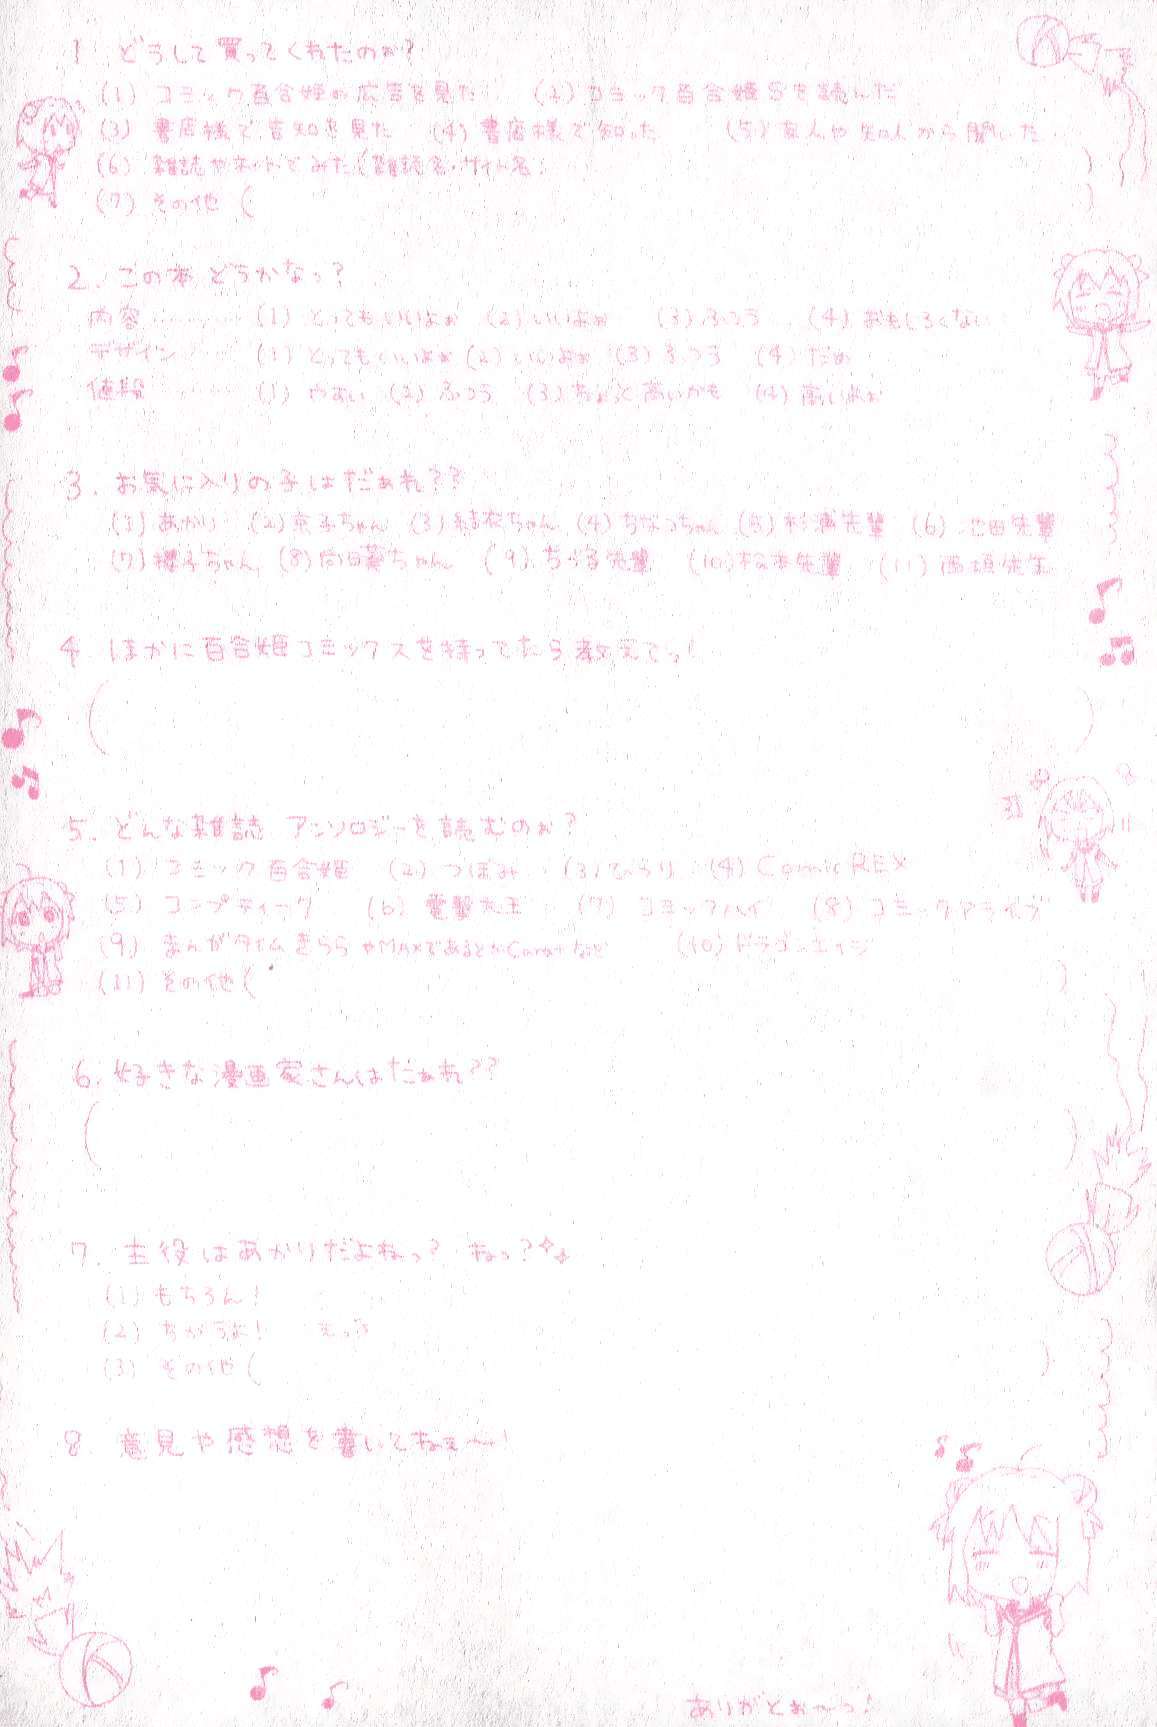 1. どうして買ってくれたのぉ?
(1) コミック百合姫の広告を見た (2) コミック百合姫Sを読んだ
(3) 書店様で告知を見た (4) 書店様で知った (5) 友人や知人から聞いた
(6) 雑誌やネットでみた(雑誌名・サイト名: )
(7) その他 ( )
2. この本どうかなっ?
内容………… (1) とってもいいよぉ (2) いいよぉ (3) ふつう (4) おもしろくない
デザイン…… (1) とってもいいよぉ (2) いいよぉ (3) ふつう (4) だめ
値段………… (1) やすい (2) ふつう (3) ちょっと高いかも (4) 高いよぉ
3. お気に入りの子はだぁれ??
(1) あかり (2) 京子ちゃん (3) 結衣ちゃん (4) ちなつちゃん (5) 杉浦先輩 (6) 池田先輩
(7) 櫻子ちゃん (8) 向日葵ちゃん (9) 先輩 (10) 松本先輩 (11) 西垣先生
4. ほかに百合姫コミックスを持ってたら教えてっ!
( )
5. どんな雑誌、アンソロジーを読むのぉ?
(1) コミック百合姫 (2) つぼみ (3) ひらり (4) Comic REX
(5) コンプティーク (6) 電撃大王 (7) コミックハイ (8) コミックアライブ
(9) まんがタイムきららやMAXであるとかCaratなど (10) ドラゴンエイジ
(11) その他 ( )
6. 好きな漫画家さんはだぁれ??
( )
7. 主役はあかりだよねっ? ねっ?
(1) もちろん!
(2) ちがうよ! えっ
(3) その他 ( )
8. 意見や感想を書いてねぇ〜!
ありがとぉーっ♪